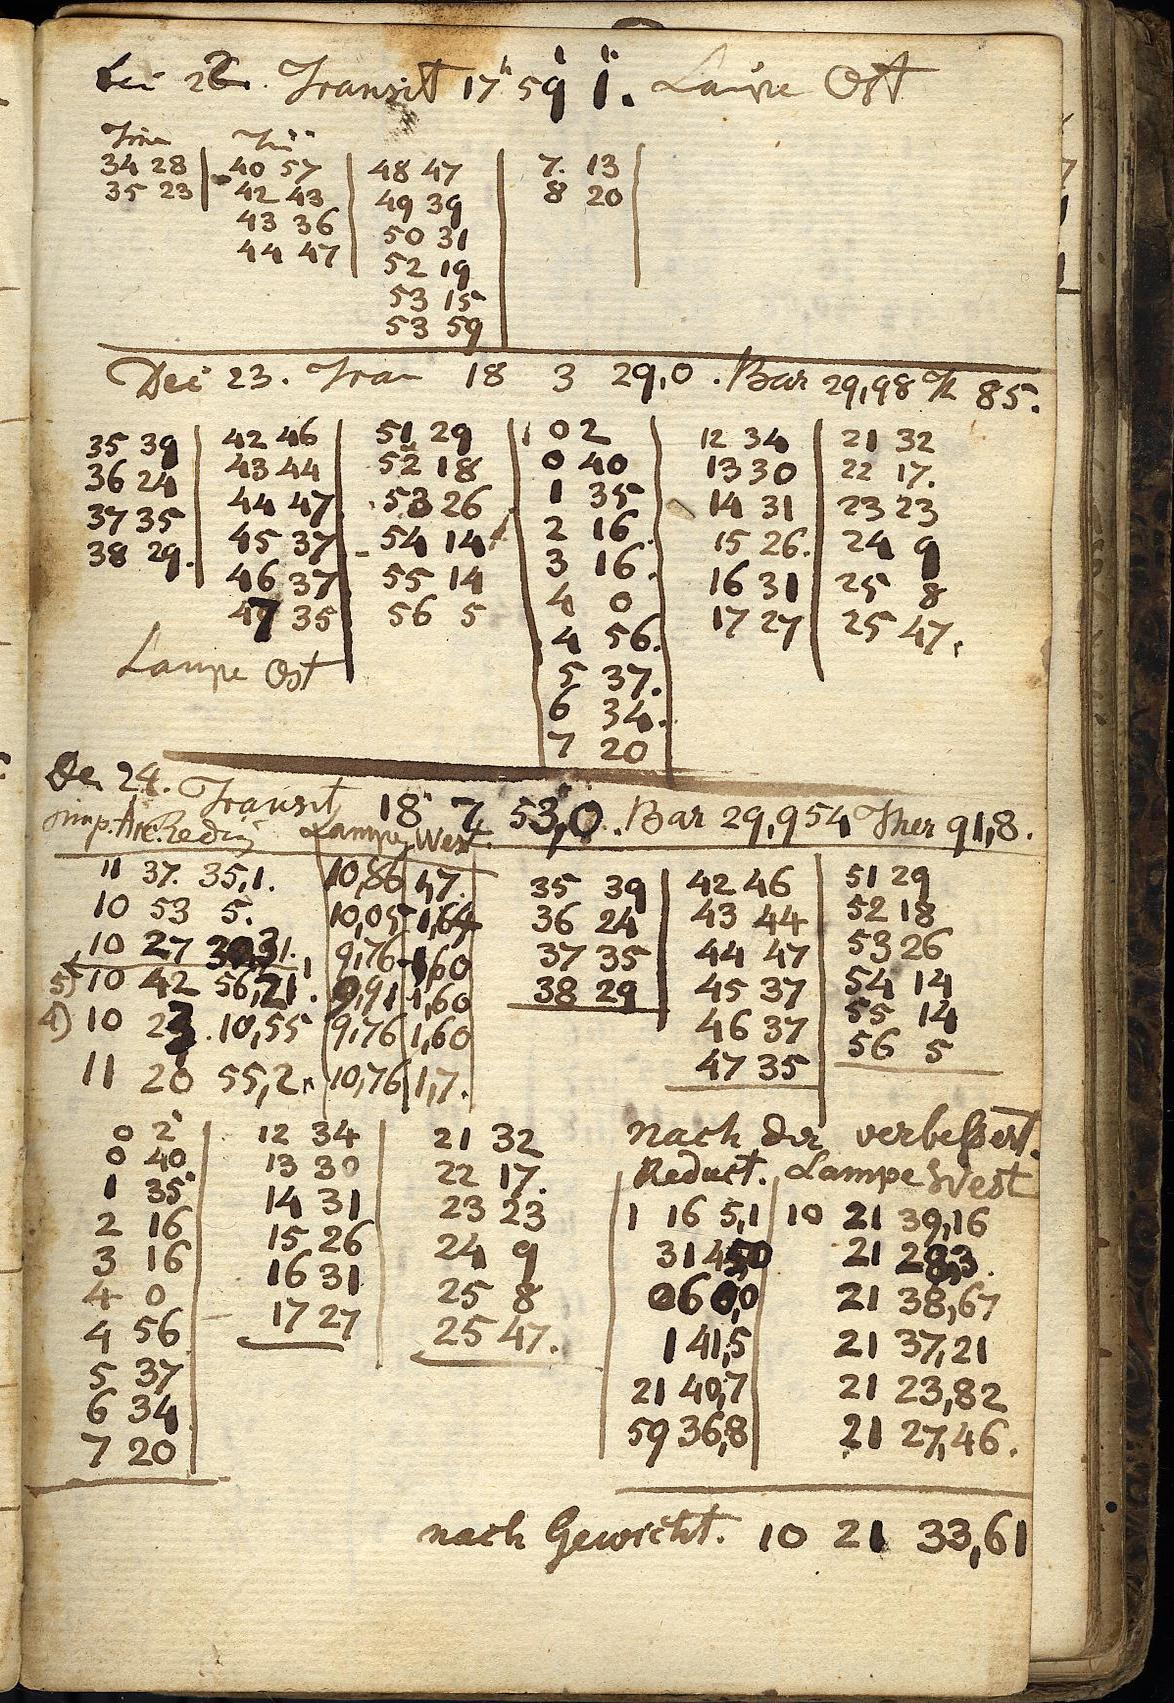 Dec 22. Transit 17h 59' 1". Lampe Ost
34 28 | 40 57 | 48 47 | 7. 13
35 23 | 42 43 | 49 39 | 8 20
43 36 | 50 31
44 47 | 52 19
53 15
53 59
Dec 23. Tran 18 3 29,0. Bar 29,98 Th 85.
35 39 | 42 46 | 51 29 | 0 2 | 12 34 | 21 32
36 24 | 43 44 | 52 18 | 0 40 | 13 30 | 22 17.
37 35 | 44 47 | 53 26 | 1 35 | 14 31 | 23 23
38 29. | 45 37 | 54 14 | 2 16. | 15 26. | 24 9
46 37 | 55 14 | 3 16. | 16 31 | 25 8
47 35 | 56 5 | 4 0 | 17 27 | 25 47.
4 56.
Lampe Ost
5 37.
6 34.
7 20
De 24. Transit 18 7 53,0. Bar 29,954 Ther 91,8.
Lampe West.
11 37. 35,1. | 10,86 | 1,7. | 35 39 | 42 46 | 51 29
10 53 5. | 10,05 | 1,64 | 36 24 | 43 44 | 52 18
10 27 | 9,76 | 1,60 | 37 35 | 44 47 | 53 26
5) 10 42 56,21. | 9,91 | 1,60 | 38 29 | 45 37 | 54 14
4) 10 23. 10,55 | 9,76 | 1,60 | 46 37 | 55 14
11 20 55,2. | 10,76 | 1,7. | 47 35 | 56 5
0 2 | 12 34 | 21 32
0 40 | 13 30 | 22 17.
1 35 | 14 31 | 23 23
2 16 | 15 26 | 24 9
3 16 | 16 31 | 25 8
4 0 | 17 27 | 25 47.
4 56
5 37
6 34
7 20
nach der verbessert.
Reduct. Lampe West
1 16 5,1 | 10 21 39,16
31 45,0 | 21 28,3.
06 0,0 | 21 38,67
1 41,5 | 21 37,21
21 40,7 | 21 23,82
59 36,8 | 21 27,46.
nach Gewicht. 10 21 33,61